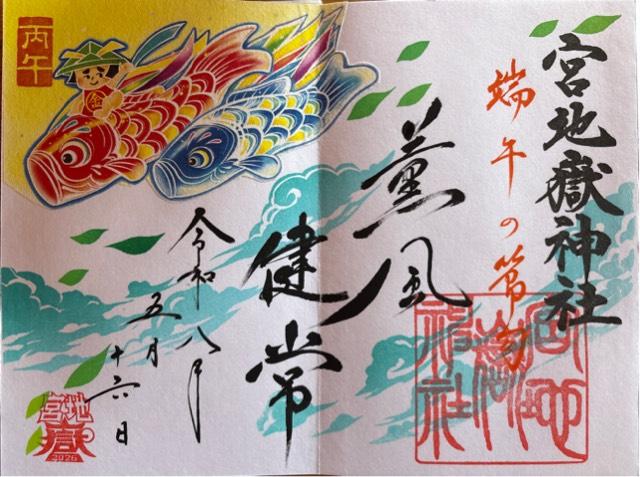 宮地嶽神社
端午の節句
薫風
健常
令和八年
五月
十六日
丙午
金
宮地
嶽
神社
宮地
嶽
2026